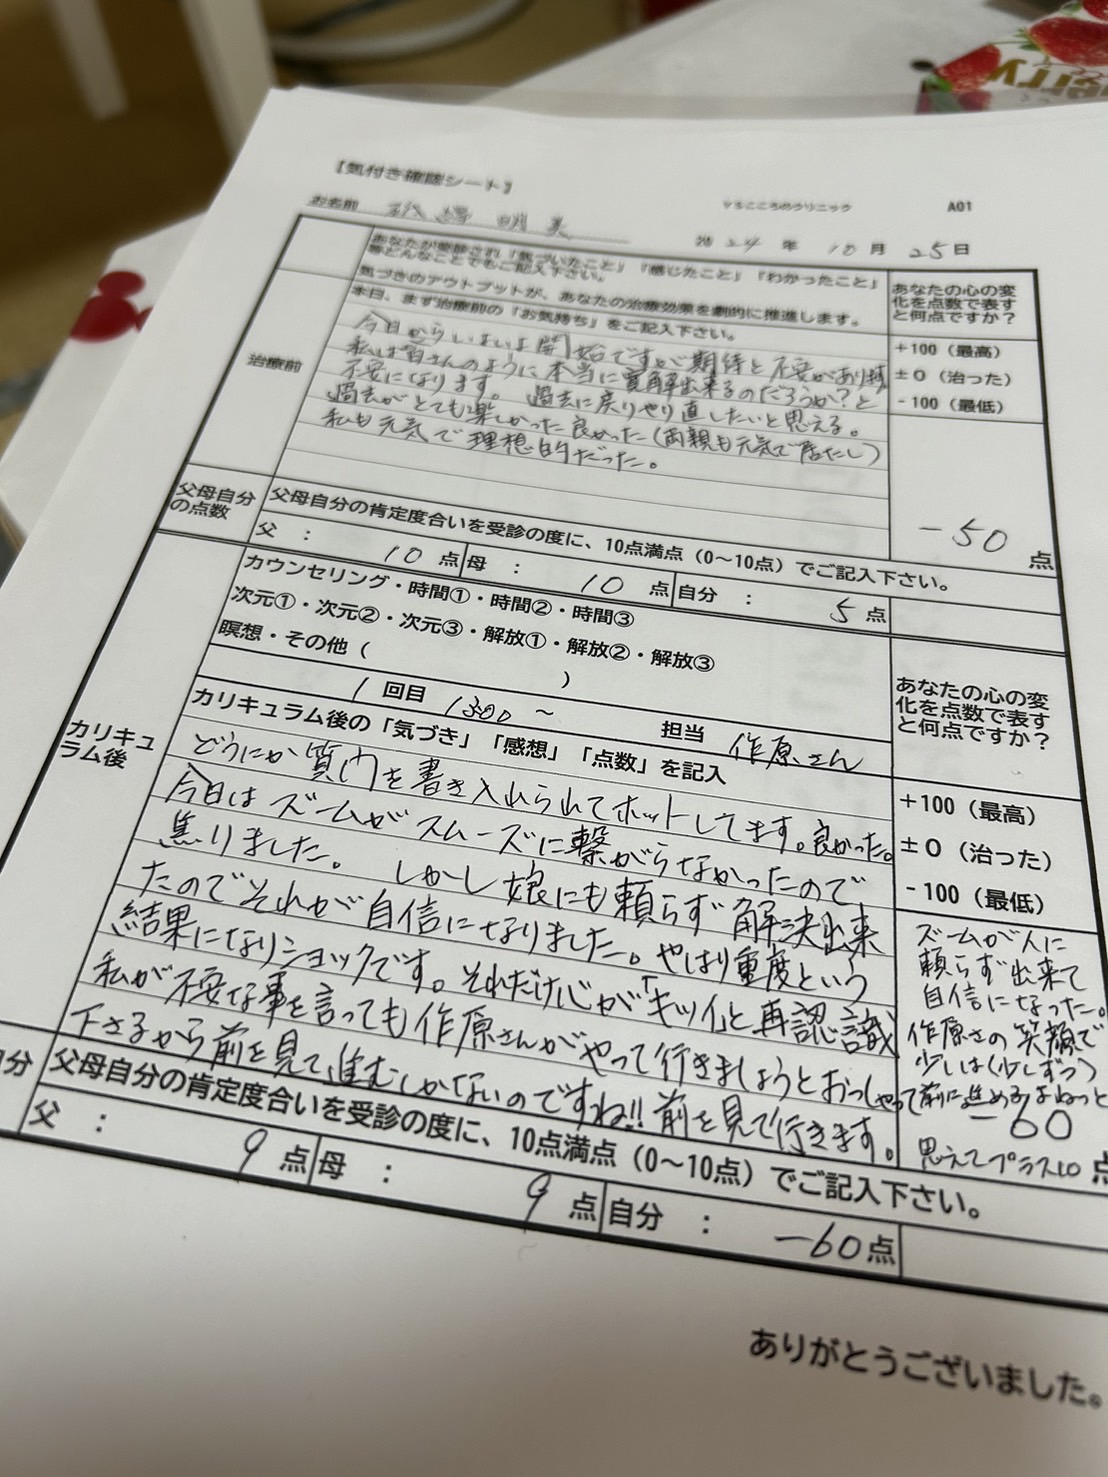 【気付き確認シート】
お名前 明美
こころのクリニック A01
2024年10月25日
あなたが受診され「気づいたこと」「感じたこと」「わかったこと」
等どんなことでもご記入下さい。
気づきのアウトプットが、あなたの治療効果を劇的に推進します。
あなたの心の変
化を点数で表す
と何点ですか？
治療前
本日、まず治療前の「お気持ち」をご記入下さい。
今日からいよいよ開始ですが期待と不安があります
私は皆さんのように本当に寛解出来るのだろうか？と
不安になります。過去に戻りやり直したいと思える。
過去がとても楽しかった良かった（両親も元気で居たし）
私も元気で理想的だった。
+100（最高）
±0（治った）
-100（最低）
-50 点
父母自分
の点数
父母自分の肯定度合いを受診の度に、10点満点（0～10点）でご記入下さい。
父 ： 10 点 母 ： 10 点 自分 ： 5 点
カリキュ
ラム後
カウンセリング・時間①・時間②・時間③
次元①・次元②・次元③・解放①・解放②・解放③
瞑想・その他（ ）
1 回目 13:00 ～ 担当 作原さん
カリキュラム後の「気づき」「感想」「点数」を記入
あなたの心の変
化を点数で表す
と何点ですか？
どうにか質門を書き入れられてホットしてます。良かった。
今日はズームがスムーズに繋がらなかったので
焦りました。しかし娘にも頼らず解決出来
たのでそれが自信になりました。やはり重度という
結果になりショックです。それだけ心が「キツイ」と再認識
私が不安な事を言っても作原さんがやって行きましょうとおっしゃって
下さるから前を見て進むしかないのですね!!前を見て行きます。
+100（最高）
±0（治った）
-100（最低）
ズームが人に
頼らず出来て
自信になった。
作原さの笑顔で
少しは（少しずつ）
前に進めるよねっと
-60
思えてプラス10 点
自分
父母自分の肯定度合いを受診の度に、10点満点（0～10点）でご記入下さい。
父 ： 9 点 母 ： 9 点 自分 ： -60 点
ありがとうございました。